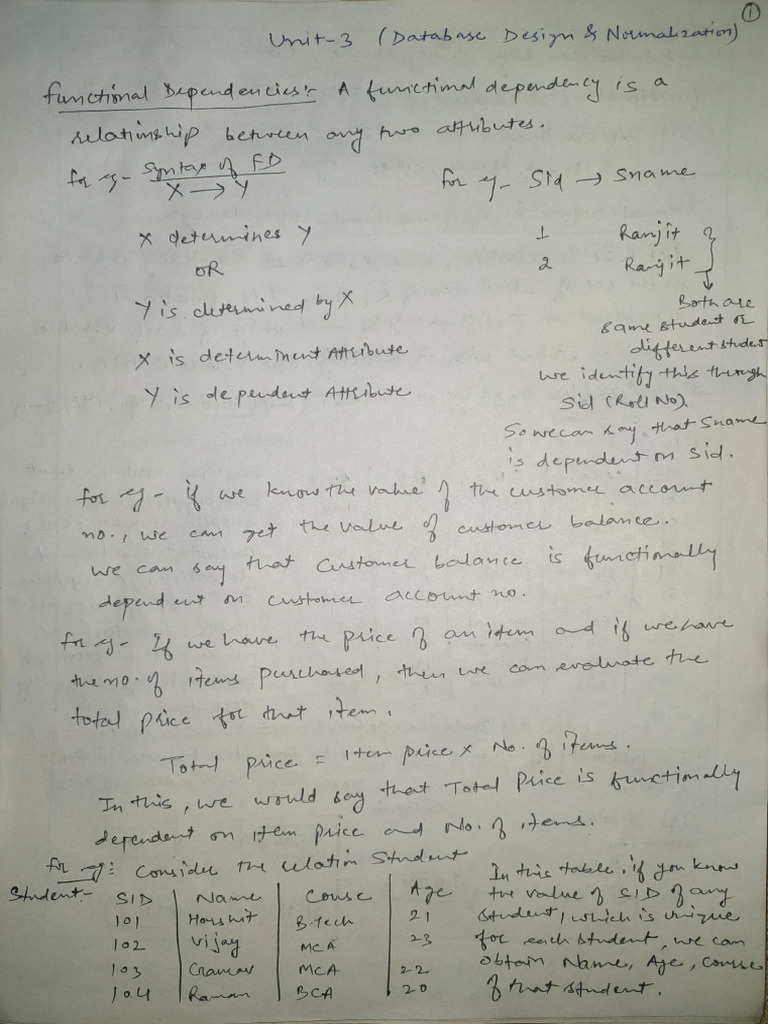 ①
Unit-3 (Database Design & Normalization)
Functional Dependencies:- A functional dependency is a
relationship between any two attributes.
for eg- Syntax of FD
X → Y
X determines Y
OR
Y is determined by X
X is determinent Attribute
Y is dependent Attribute
for eg- Sid → Sname
1 Ranjit
2 Ranjit
Both are
same student or
different student
we identify this through
Sid (Roll No).
So we can say that Sname
is dependent on Sid.
for eg- if we know the value of the customer account
no., we can get the value of customer balance.
we can say that Customer balance is functionally
dependent on customer account no.
for eg- If we have the price of an item and if we have
the no. of items purchased, then we can evaluate the
total price for that item.
Total price = Item price x No. of items.
In this, we would say that Total Price is functionally
dependent on item price and No. of items.
for eg: Consider the relation Student
Student:-
SID Name Course Age
101 Harshit B.Tech 21
102 Vijay MCA 23
103 Gaurav MCA 22
104 Raman BCA 20
In this table, if you know
the value of SID of any
student, which is unique
for each student, we can
obtain Name, Age, Course
of that student.